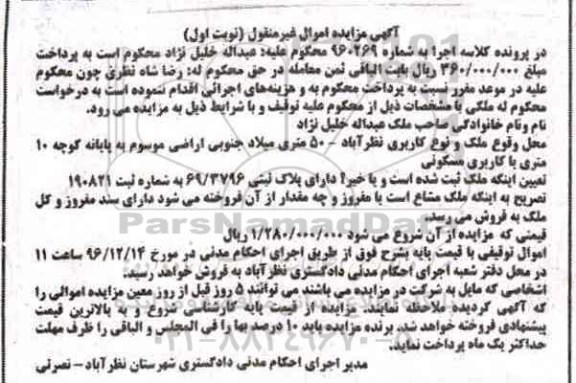 آگهی مزایده اموال غیرمنقول (نوبت اول)
در پرونده کلاسه اجرا به شماره ۹۶۰۲۶۹ محکوم علیه: عبداله خلیل نژاد محکوم است به پرداخت
مبلغ ۳۶۰/۰۰۰/۰۰۰ ریال بابت الباقی ثمن معامله در حق محکوم له: رضا شاه نظری چون محکوم
علیه در موعد مقرر نسبت به پرداخت محکوم به و هزینه‌های اجرائی اقدام ننموده است به درخواست
محکوم له ملکی با مشخصات ذیل از محکوم علیه توقیف و با شرایط ذیل به مزایده می رود.
نام ونام خانوادگی صاحب ملک عبداله خلیل نژاد
محل وقوع ملک و نوع کاربری نظرآباد - ۵۰ متری میلاد جنوبی اراضی موسوم به پایانه کوچه ۱۰
متری با کاربری مسکونی
تعیین اینکه ملک ثبت شده است و یا خیر؟ دارای پلاک ثبتی ۶۹/۳۷۹۶ به شماره ثبت ۱۹۰۸۲۱
تصریح به اینکه ملک مشاع است یا مفروز و چه مقدار از آن فروخته می شود دارای سند مفروز و کل
ملک به فروش می رسد.
قیمتی که مزایده از آن شروع می شود ۱/۲۸۰/۰۰۰/۰۰۰ ریال
اموال توقیفی با قیمت پایه بشرح فوق از طریق اجرای احکام مدنی در مورخ ۹۶/۱۲/۱۴ ساعت ۱۱
در محل دفتر شعبه اجرای احکام مدنی دادگستری نظرآباد به فروش خواهد رسید.
اشخاصی که مایل به شرکت در مزایده می باشند می توانند ۵ روز قبل از روز معین مزایده اموالی را
که آگهی گردیده ملاحظه نمایند. مزایده از قیمت پایه کارشناسی شروع و به بالاترین قیمت
پیشنهادی فروخته خواهد شد. برنده مزایده باید ۱۰ درصد بها را فی المجلس و الباقی را ظرف مهلت
حداکثر یک ماه پرداخت نماید.
مدیر اجرای احکام مدنی دادگستری شهرستان نظرآباد - نصرتی
ParsNamadData
۰۲۱-۸۸۳۴۹۶۷۰